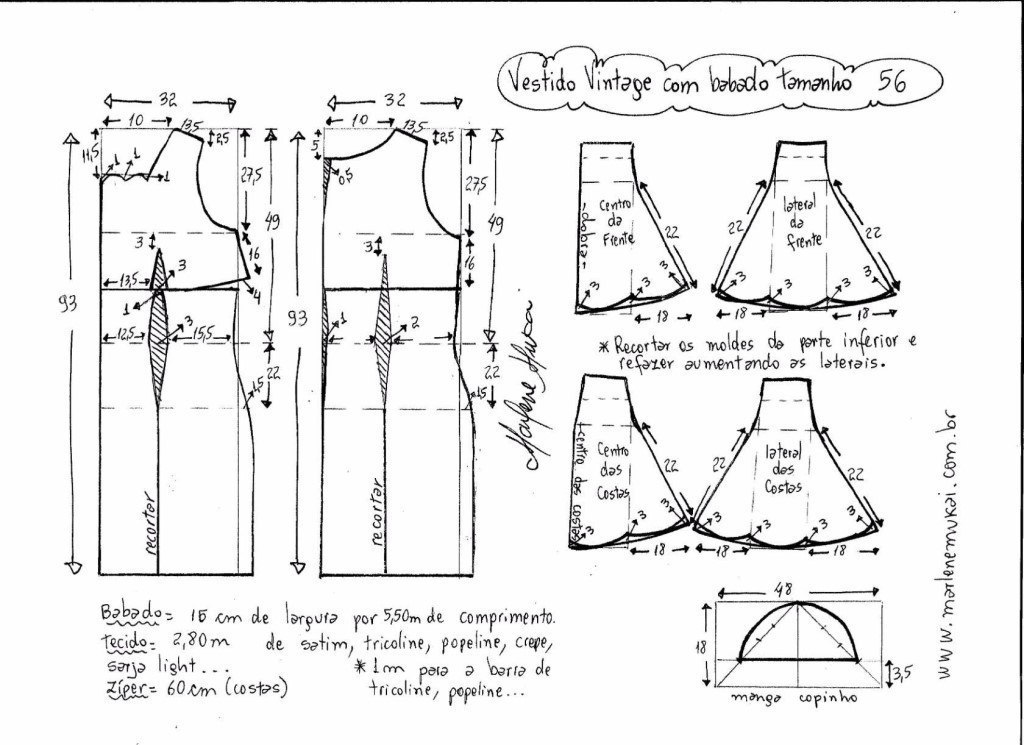 Vestido Vintage com babado tamanho 56
32
10
13,5
2,5
11,5
1
1
1
27,5
49
3
16
13,5
3
4
1
93
12,5
3
15,5
22
1,5
recortar
32
10
13,5
2,5
5
0,5
27,5
49
3
16
93
1
2
22
1,5
recortar
centro da frente
-dobra-
22
3
3
18
lateral da frente
22
22
3
3
3
3
18
* Recortar os moldes da parte inferior e
refazer aumentando as laterais.
Centro das Costas
centro das costas
22
3
3
18
lateral das Costas
22
22
3
3
3
3
18
18
48
18
3,5
manga copinho
Babado= 15 cm de largura por 5,50m de comprimento.
Tecido= 2,80m de satim, tricoline, popeline, crepe,
sarja light...
* 1m para a barra de
tricoline, popeline...
Zíper= 60cm (costas)
www.marlenemukai.com.br